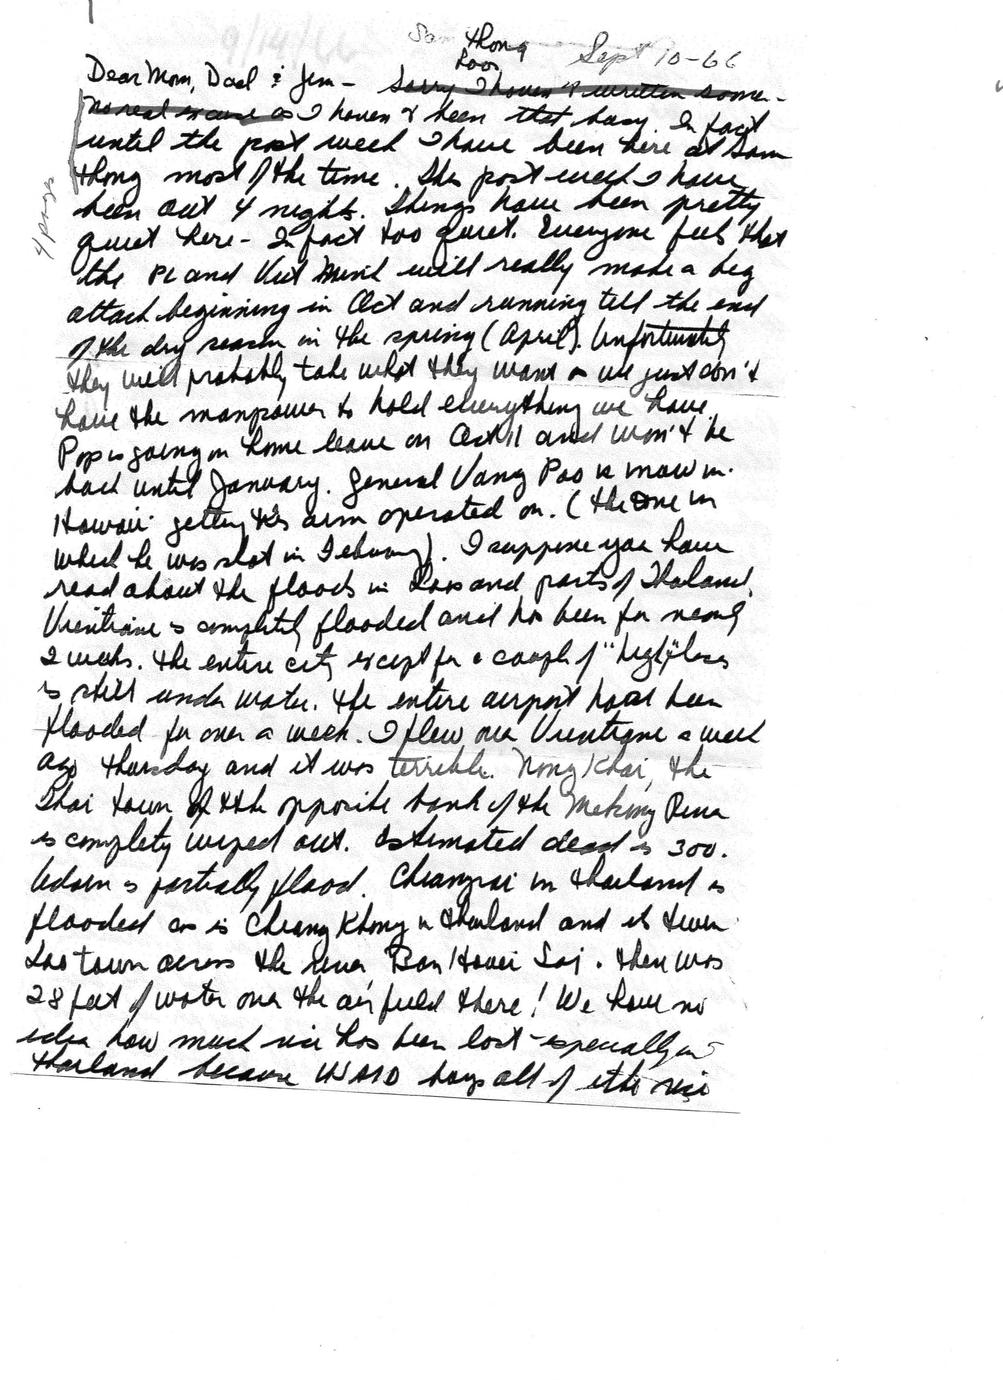 9/14/66
Sam Thong
Laos
Sept 10-66
Dear Mom, Dad & Jim - Sorry I haven't written some-
no real excuse as I haven't been that busy. In fact
until the past week I have been here at Sam
Thong most of the time. This past week I have
been out 4 nights. Things have been pretty
quiet here - In fact too quiet. Everyone feels that
the PL and Viet Minh will really make a big
attack beginning in Oct and running till the end
of the dry season in the spring (April). Unfortunately
they will probably take what they want as we just don't
have the manpower to hold everything we have.
Pop is going on home leave on Oct 11 and won't be
back until January. General Vang Pao is now in
Hawaii getting his arm operated on. (the one in
which he was shot in February). I suppose you have
read about the floods in Laos and parts of Thailand.
Vientiane is completly flooded and has been for nearly
2 weeks. The entire city except for a couple of "high" places
is still under water. The entire airport has been
flooded for over a week. I flew over Vientiane a week
ago Thursday and it was terrible. Nong Khai, the
Thai town of the opposite bank of the Mekong River
is complety wiped out. Estimated dead is 300.
Udorn is partially flood. Chiangrai in Thailand is
flooded as is Chiang Khong in Thailand and its twin
Lao town across the river Ban Houei Sai. There was
28 feet of water over the air field there! We have no
idea how much rice has been lost especially in
Thailand because USAID buys all of its rice
4 pages